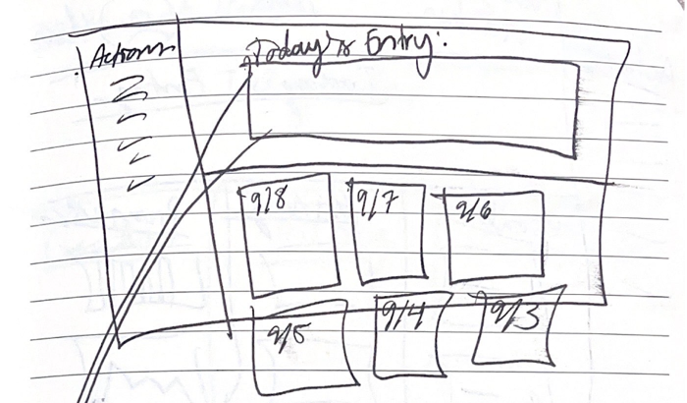 Actions
Today's Entry:
9/8
9/7
9/6
9/5
9/4
9/3